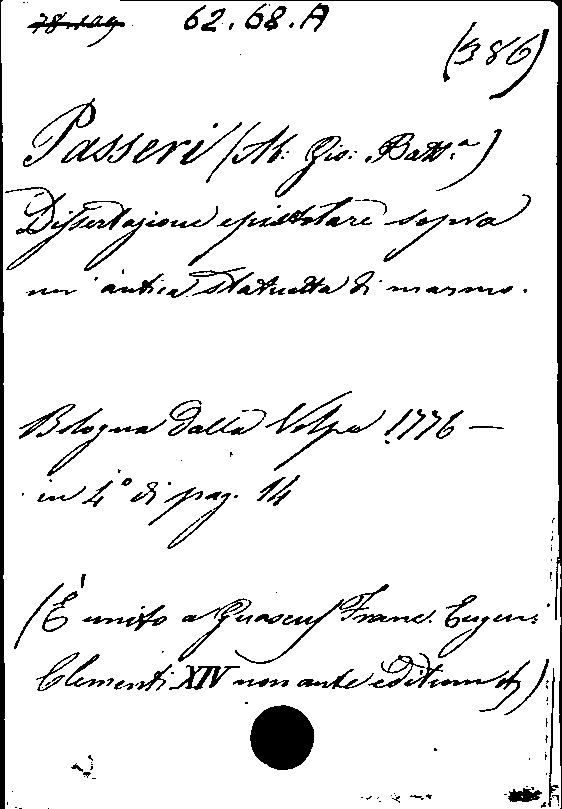 62.68.A
(386)
Passeri (Ab: Gio: Batt.ª)
Dissertazione epistolare sopra
un' antica statuetta di marmo.
Bologna dalla Volpe 1776 —
in 4° di pag. 14
(È unito a Guasco Franc. Eugeni
Clementi XIV non ante editum)